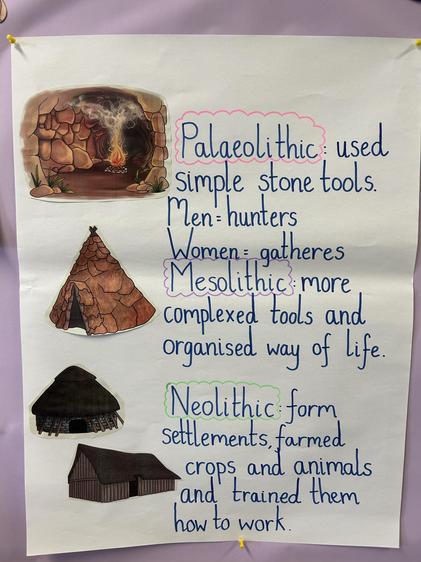 Palaeolithic: used
simple stone tools.
Men = hunters
Women = gatheres
Mesolithic: more
complexed tools and
organised way of life.
Neolithic: form
settlements, farmed
crops and animals
and trained them
how to work.